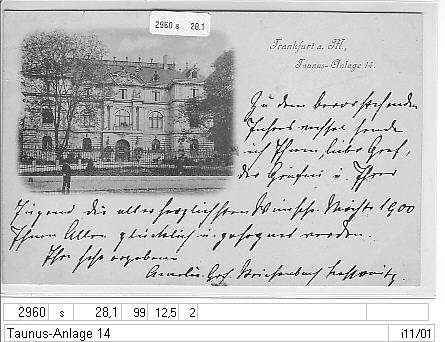 2960 s 28,1
Frankfurt a. M.,
Taunus-Anlage 14.
Zu dem bevorstehenden
Jahreswechsel sende
ich Ihnen, lieber Graf,
der Gräfin u. Ihrer
Jugend die allerherzlichsten Wünsche. Möchte 1900
Ihnen Allen glücklich u. gesegnet werden.
Ihre sehr ergebene
Amelie
2960 s 28,1 99 12,5 2
Taunus-Anlage 14 i11/01